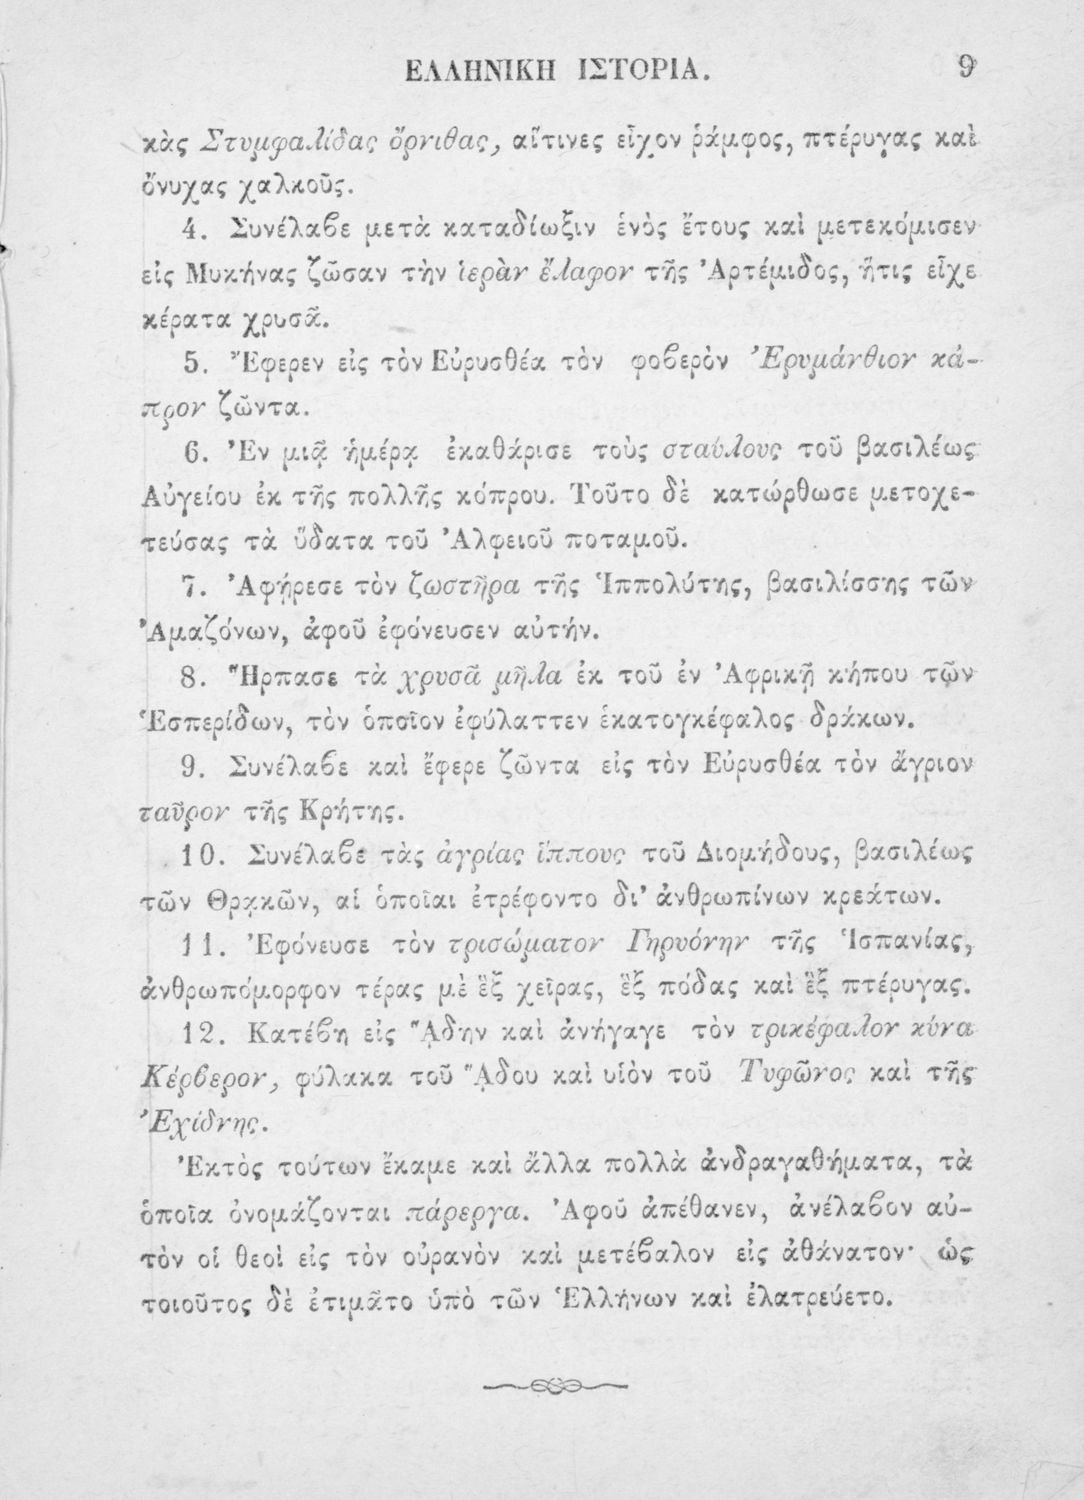 ΕΛΛΗΝΙΚΗ ΙΣΤΟΡΙΑ. 9
κὰς Στυμφαλίδας ὄρνιθας, αἵτινες εἶχον ῥάμφος, πτέρυγας καὶ
ὄνυχας χαλκοῦς.
4. Συνέλαβε μετὰ καταδίωξιν ἑνὸς ἔτους καὶ μετεκόμισεν
εἰς Μυκήνας ζῶσαν τὴν ἱερὰν ἔλαφον τῆς Ἀρτέμιδος, ἥτις εἶχε
κέρατα χρυσᾶ.
5. Ἔφερεν εἰς τὸν Εὐρυσθέα τὸν φοβερὸν Ἐρυμάνθιον κά-
προν ζῶντα.
6. Ἐν μιᾷ ἡμέρᾳ ἐκαθάρισε τοὺς σταύλους τοῦ βασιλέως
Αὐγείου ἐκ τῆς πολλῆς κόπρου. Τοῦτο δὲ κατώρθωσε μετοχε-
τεύσας τὰ ὕδατα τοῦ Ἀλφειοῦ ποταμοῦ.
7. Ἀφῄρεσε τὸν ζωστῆρα τῆς Ἱππολύτης, βασιλίσσης τῶν
Ἀμαζόνων, ἀφοῦ ἐφόνευσεν αὐτήν.
8. Ἥρπασε τὰ χρυσᾶ μῆλα ἐκ τοῦ ἐν Ἀφρικῇ κήπου τῶν
Ἑσπερίδων, τὸν ὁποῖον ἐφύλαττεν ἑκατογκέφαλος δράκων.
9. Συνέλαβε καὶ ἔφερε ζῶντα εἰς τὸν Εὐρυσθέα τὸν ἄγριον
ταῦρον τῆς Κρήτης.
10. Συνέλαβε τὰς ἀγρίας ἵππους τοῦ Διομήδους, βασιλέως
τῶν Θρᾳκῶν, αἱ ὁποῖαι ἐτρέφοντο δι' ἀνθρωπίνων κρεάτων.
11. Ἐφόνευσε τὸν τρισώματον Γηρυόνην τῆς Ἱσπανίας,
ἀνθρωπόμορφον τέρας μὲ ἓξ χεῖρας, ἓξ πόδας καὶ ἓξ πτέρυγας.
12. Κατέβη εἰς ᾍδην καὶ ἀνήγαγε τὸν τρικέφαλον κύνα
Κέρβερον, φύλακα τοῦ ᾍδου καὶ υἱὸν τοῦ Τυφῶνος καὶ τῆς
Ἐχίδνης.
Ἐκτὸς τούτων ἔκαμε καὶ ἄλλα πολλὰ ἀνδραγαθήματα, τὰ
ὁποῖα ὀνομάζονται πάρεργα. Ἀφοῦ ἀπέθανεν, ἀνέλαβον αὐ-
τὸν οἱ θεοὶ εἰς τὸν οὐρανὸν καὶ μετέβαλον εἰς ἀθάνατον· ὡς
τοιοῦτος δὲ ἐτιμᾶτο ὑπὸ τῶν Ἑλλήνων καὶ ἐλατρεύετο.